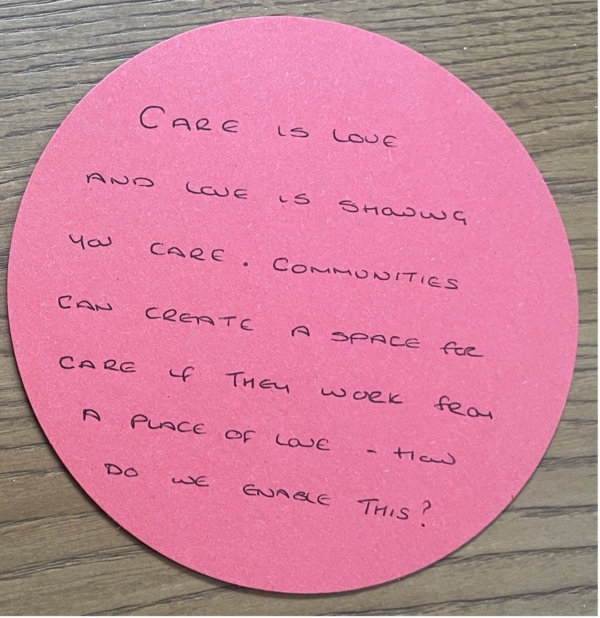 CARE IS LOVE
AND LOVE IS SHOWING
YOU CARE. COMMUNITIES
CAN CREATE A SPACE FOR
CARE IF THEY WORK FROM
A PLACE OF LOVE - HOW
DO WE ENABLE THIS?